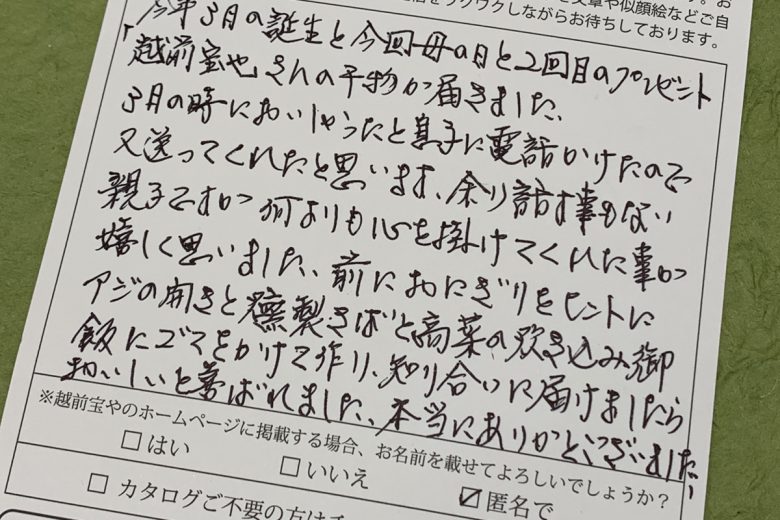 文章や似顔絵などご自
ワクワクしながらお待ちしております。
今年3月の誕生と今回母の日と2回目のプレゼント
「越前宝や」さんの干物が届きました、
3月の時においしかったと息子に電話かけたので
又送ってくれたと思います、余り話す事もない
親子ですが何よりも心を掛けてくれた事が
嬉しく思いました、前におにぎりをヒントに
アジの開きと燻製さばと高菜の炊き込み御
飯にゴマをかけて作り、知り合いに届けましたら
おいしいと喜ばれました、本当にありがとうございました、
※越前宝やのホームページに掲載する場合、お名前を載せてよろしいでしょうか？
□はい □いいえ ☑匿名で
□カタログご不要の方は